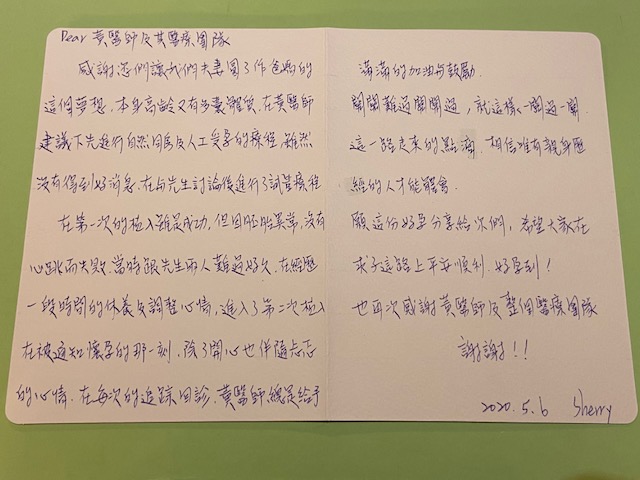 Dear 黃醫師及其醫療團隊
感謝您們讓我們夫妻圓了作爸媽的
這個夢想. 本身高齡又有多囊體質. 在黃醫師
建議下先進行自然同房及人工受孕的療程. 雖然
沒有得到好消息. 在与先生討論後進行了試管療程
在第一次的植入雖是成功, 但因胚胎異常, 沒有
心跳而失敗. 當時跟先生兩人難過好久. 在經歷
一段時間的休養及調整心情, 進入了第二次植入
在被通知懷孕的那一刻. 除了開心也伴隨忐忑
的心情. 在每次的追踪回診. 黃醫師總是給予
滿滿的加油与鼓勵.
關關難過關關過, 就這樣一關過一關
這一路走來的點滴. 相信唯有親身歷
經的人才能體會.
願這份好孕分享給你們, 希望大家在
求子這路上平安順利. 好孕到!
也再次感謝黃醫師及整個醫療團隊
謝謝!!
2020.5.6 Sherry